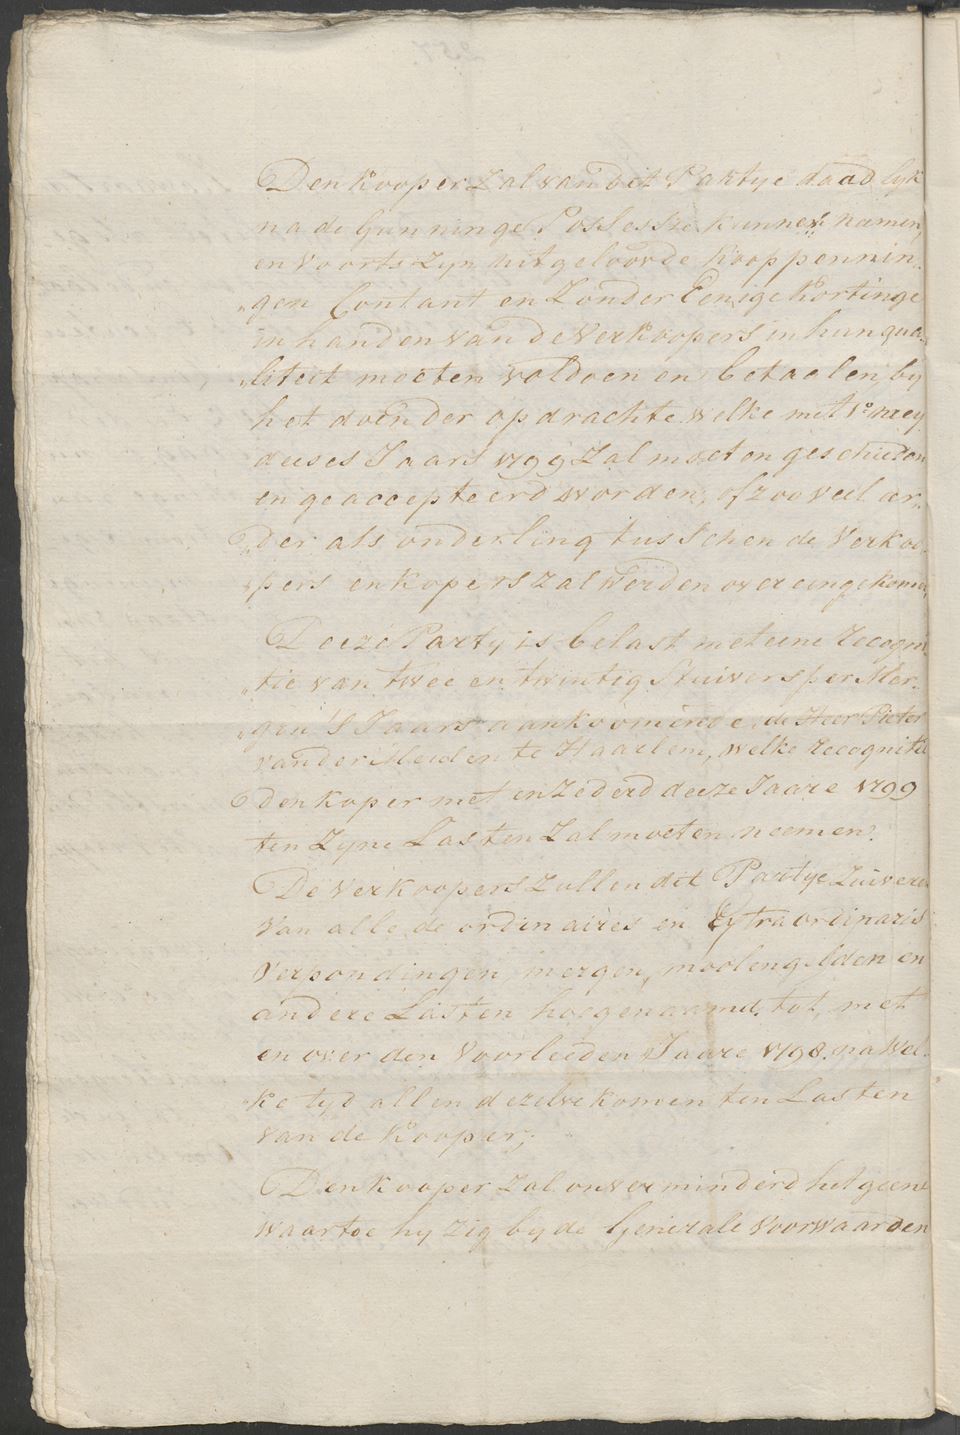 Den Kooper Zal van het Paktye daadlyk
na de Gunninge Possessie kunnen namen,
en voorts zyn uitgeloovde Kooppennin„
„gen Contant en Zonder Eenige Kortinge
in handen van de Verkoopers in hun qua„
„liteit moeten voldoen en betaelen, by
het doen der opdrachte welke met Vo mey
deeses Jaars 1799 Zal moeten geschieden
en geaccepteerd worden, of zoo veel eer„
„der als onderling tusschen de Verkoo„
„pers en Kopers zal werden overeengekomen
Deeze Party is belast met eene recogni„
„tie van twee en twintig Stuivers per Mer„
„gen 'S Jaars aankoomende de Heer Pieter
vander te Haarlem, welke recognitie
den koper met en Zederd deeze Jaare 1799
ten Zyne Lasten Zal moeten neemen.
De Verkoopers zullen dit Partye Zuiveren
van alle de ordinaires en Extraordinaris
Verpondingen mergen, moolengelden en
andere Lasten hoegenaamd, tot, met
en over den Voorleeden Jaare 1798. na wel„
„ke tyd allen dezelve komen ten Lasten
van de Kooper;
Den Kooper Zal onverminderd het geene
waartoe hy zig by de Generale Voorwaarden